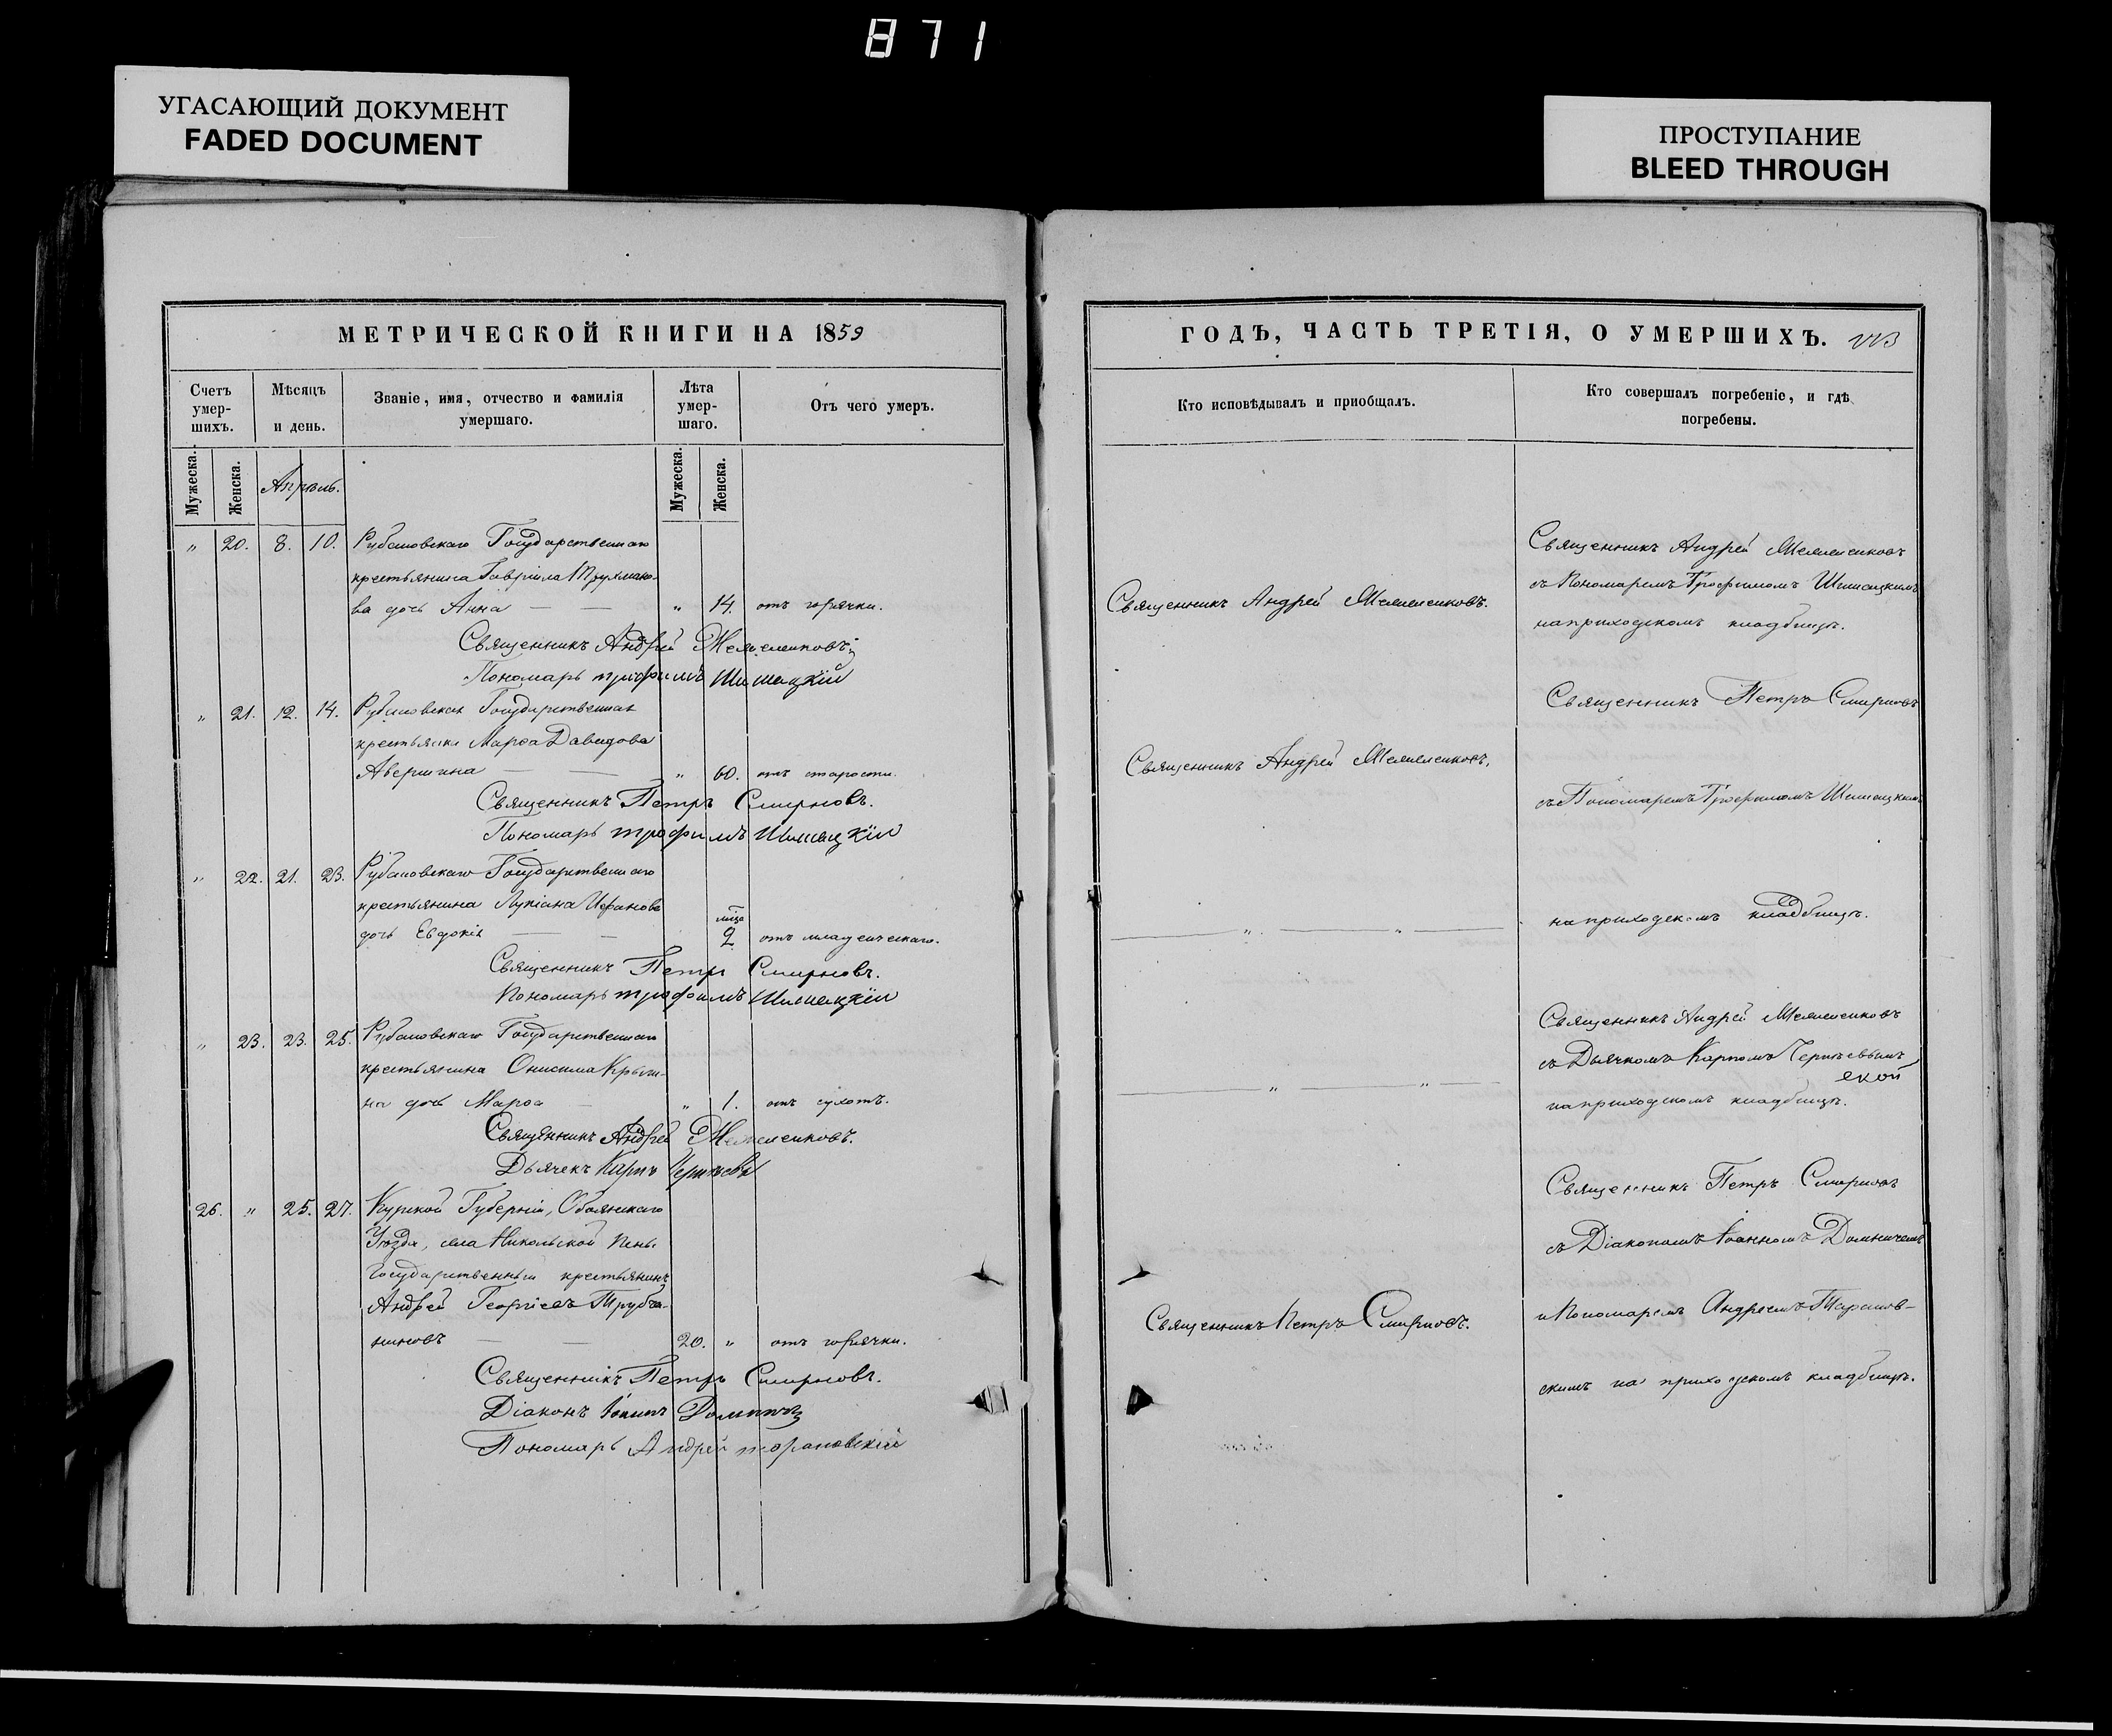 871
УГАСАЮЩИЙ ДОКУМЕНТ
FADED DOCUMENT
ПРОСТУПАНИЕ
BLEED THROUGH
МЕТРИЧЕСКОЙ КНИГИ НА 1859
Счетъ умер-шихъ.
Мѣсяцъ и день.
Званіе, имя, отчество и фамилія умершаго.
Лѣта умер-шаго.
Отъ чего умеръ.
Мужеска.
Женска.
Апрѣль.
Мужеска.
Женска.
" 20. 8. 10. Рубановскаго Государственнаго
крестьянина Гавріила
ва дочь Анна — — " 14. отъ горячки.
Священникъ Андрей
Пономарь Трофимъ Шишацкій
" 21. 12. 14. Рубановская Государственная
крестьянка Марѳа Давидова
Авершина — — " 60. отъ старости.
Священникъ Петръ Смирновъ.
Пономарь Трофимъ Шишацкій
" 22. 21. 23. Рубановскаго Государственнаго
крестьянина Лукіана
дочь Евдокія — — 2 отъ младенческаго.
Священникъ Петръ Смирновъ.
Пономарь Трофимъ Шишацкій
" 23. 23. 25. Рубановскаго Государственнаго
крестьянина Онисима
на дочь Марѳа — " 1. отъ сухотъ.
Священникъ Андрей
Дьячекъ Карпъ
26. " 25. 27. Курской Губерніи, Обоянскаго
Уѣзда, села Никольской Пены
Государственный крестьянинъ
Андрей Георгіевъ Труба-
никовъ — — 20. " отъ горячки.
Священникъ Петръ Смирновъ.
Діаконъ Іоаннъ
Пономарь Андрей Тарановскій
ГОДЪ, ЧАСТЬ ТРЕТІЯ, О УМЕРШИХЪ.
Кто исповѣдывалъ и приобщалъ.
Кто совершалъ погребеніе, и гдѣ погребены.
Священникъ Андрей
Священникъ Андрей
съ Пономаремъ Трофимомъ Шишацкимъ
на приходскомъ кладбищѣ.
Священникъ Андрей
Священникъ Петръ Смирновъ
съ Пономаремъ Трофимомъ Шишацкимъ
— " — " —
на приходскомъ кладбищѣ.
— " — " —
Священникъ Андрей
съ Дьячкомъ Карпомъ
на приходскомъ кладбищѣ.
Священникъ Петръ Смирновъ.
Священникъ Петръ Смирновъ
съ Діакономъ Іоанномъ
и Пономаремъ Андреемъ Таранов-
скимъ на приходскомъ кладбищѣ.